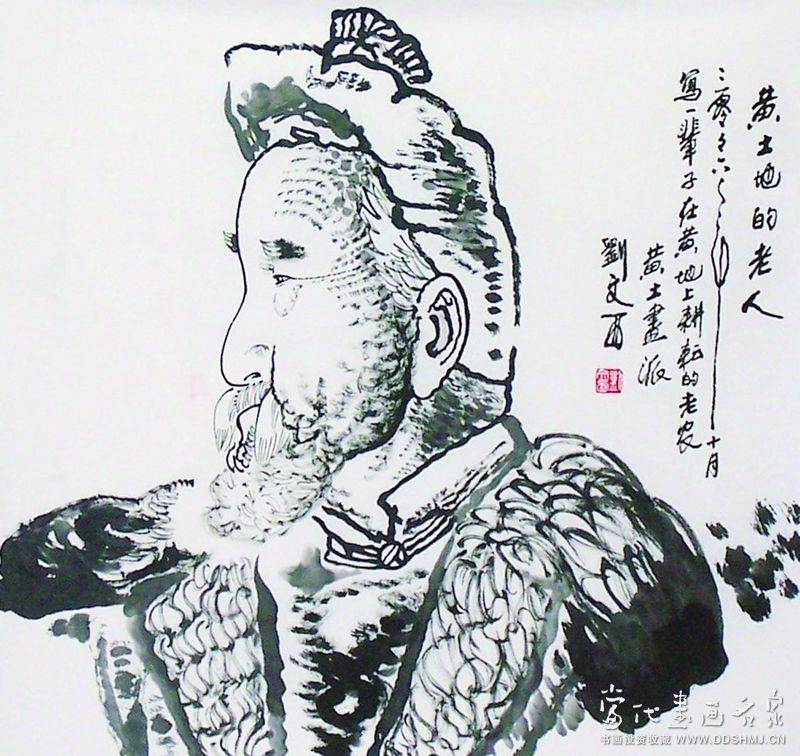 黄土地的老人
二零零六年十月
写一辈子在黄地上耕耘的老农
黄土畫派
劉文西
當代書画名家
书画投资收藏 WWW.DDSHMJ.CN